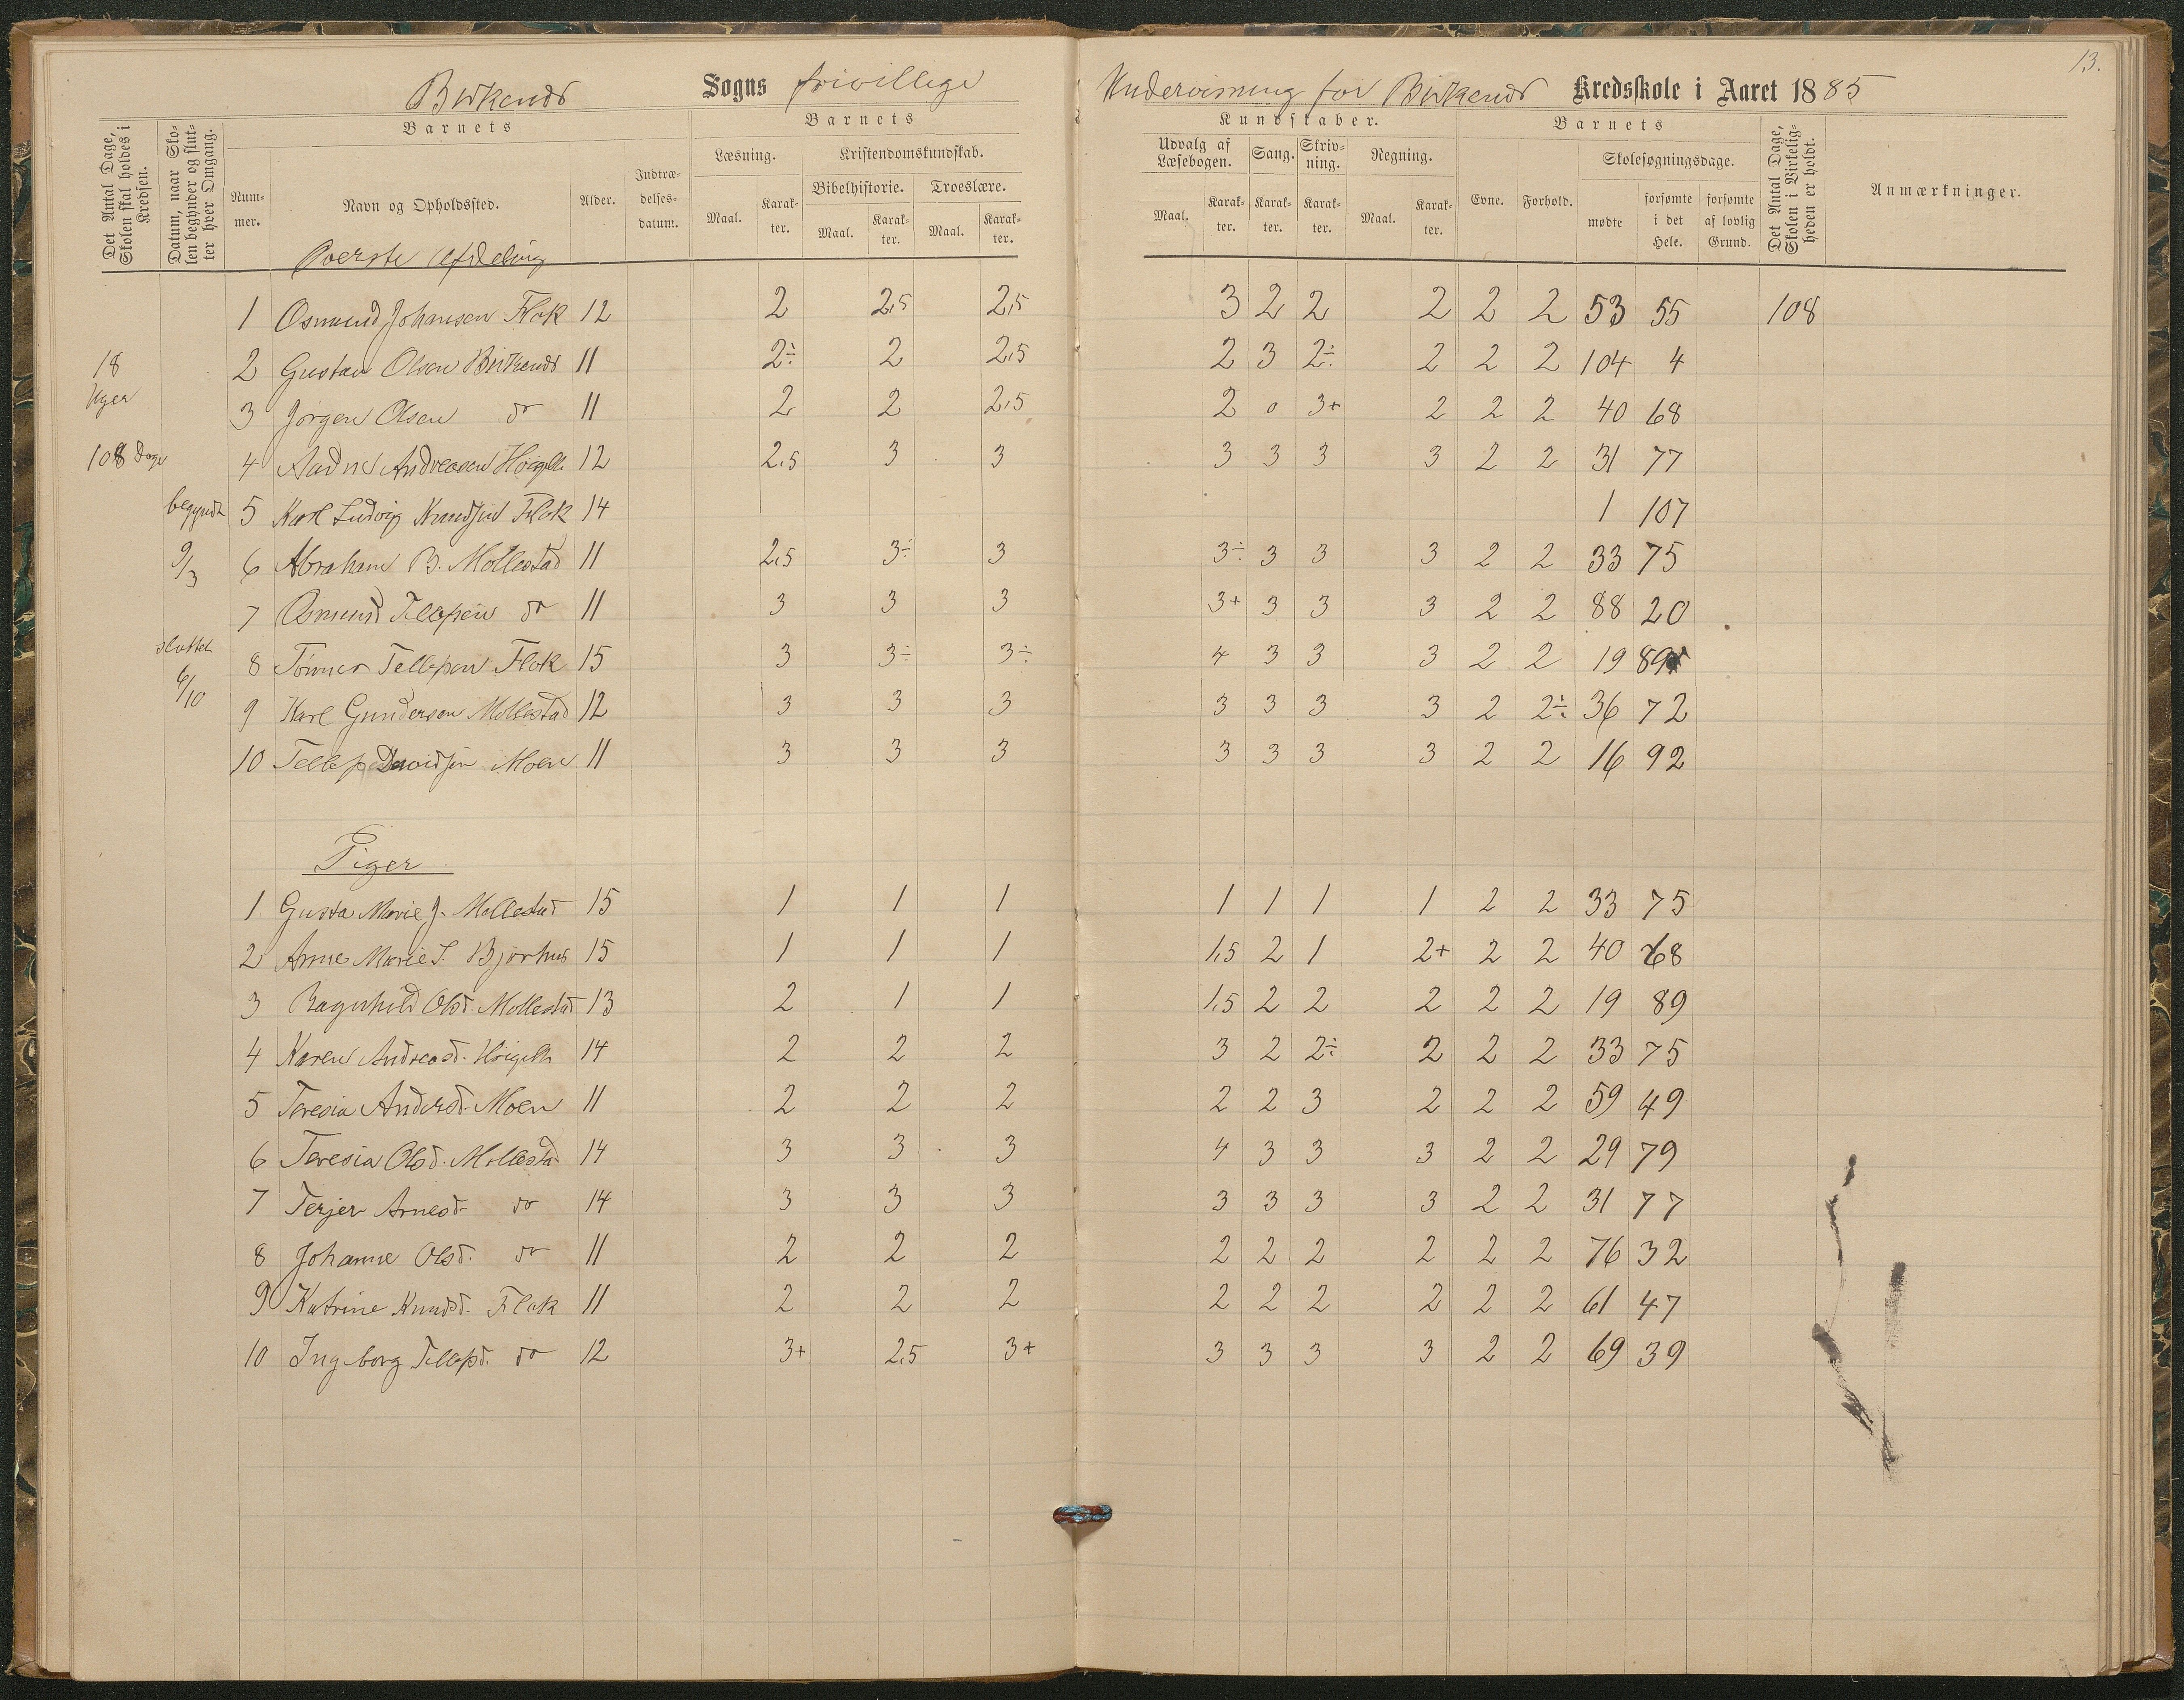 13.
Birkenes Sogns frivillige Undervisning for Birkenes Kredsskole i Aaret 1885
Det Antal Dage, Skolen skal holdes i Kredsen.
Datum, naar Skolen begynder og slutter hver Omgang.
Barnets
Nummer.
Navn og Opholdssted.
Alder.
Indtrædelsesdatum.
Barnets
Læsning.
Maal.
Karakter.
Kristendomskundskab.
Bibelhistorie.
Maal.
Karakter.
Troeslære.
Maal.
Karakter.
Kundskaber.
Udvalg af Læsebogen.
Maal.
Karakter.
Sang.
Karakter.
Skrivning.
Karakter.
Regning.
Maal.
Karakter.
Barnets
Evne.
Forhold.
Skolesøgningsdage.
mødte
forsømte i det Hele.
forsømte af lovlig Grund.
Det Antal Dage, Skolen i Virkeligheden er holdt.
Anmærkninger.
Øverste Afdeling
1 Osmund Johansen Flak 12 2 2,5 2,5 3 2 2 2 2 2 53 55 108
18 2 Gustav Olsen Birkenes 11 2÷ 2 2,5 2 3 2÷ 2 2 2 104 4
Uger
3 Jørgen Olsen do 11 2 2 2,5 2 0 3+ 2 2 2 40 68
108 Dage 4 Andreasen 12 2,5 3 3 3 3 3 3 2 2 31 77
begyndt 5 Karl Ludvig Knudsen Flak 14 1 107
9/3 6 Abraham B. Mollestad 11 2,5 3÷ 3 3÷ 3 3 3 2 2 33 75
7 Osmund Tellefsen do 11 3 3 3 3+ 3 3 3 2 2 88 20
sluttet
8 Tønnes Tellefsen Flak 15 3 3÷ 3÷ 4 3 3 3 2 2 19 89
6/10
9 Karl Gundersen Mollestad 12 3 3 3 3 3 3 3 2 2÷ 36 72
10 Tellef Davidsen Moen 11 3 3 3 3 3 3 3 2 2 16 92
Piger
1 Gusta Marie J. Mollestad 15 1 1 1 1 1 1 1 2 2 33 75
2 Anne Marie S. Bjorhus 15 1 1 1 1,5 2 1 2+ 2 2 40 68
3 Ragnhild Olsd. Mollestad 13 2 1 1 1,5 2 2 2 2 2 19 89
4 Karen Andreasd. 14 2 2 2 3 2 2÷ 2 2 2 33 75
5 Teresia Andersd. Moen 11 2 2 2 2 2 3 2 2 2 59 49
6 Teresia Olsd. Mollestad 14 3 3 3 4 3 3 3 2 2 29 79
7 Terjer Arnesd. do 14 3 3 3 3 3 3 3 2 2 31 77
8 Johanne Olsd. do 11 2 2 2 2 2 2 2 2 2 76 32
9 Katrine Knudsd. Flak 11 2 2 2 2 2 2 2 2 2 61 47
10 Ingeborg Tellefsd. do 12 3+ 2,5 3+ 3 3 3 3 2 2 69 39